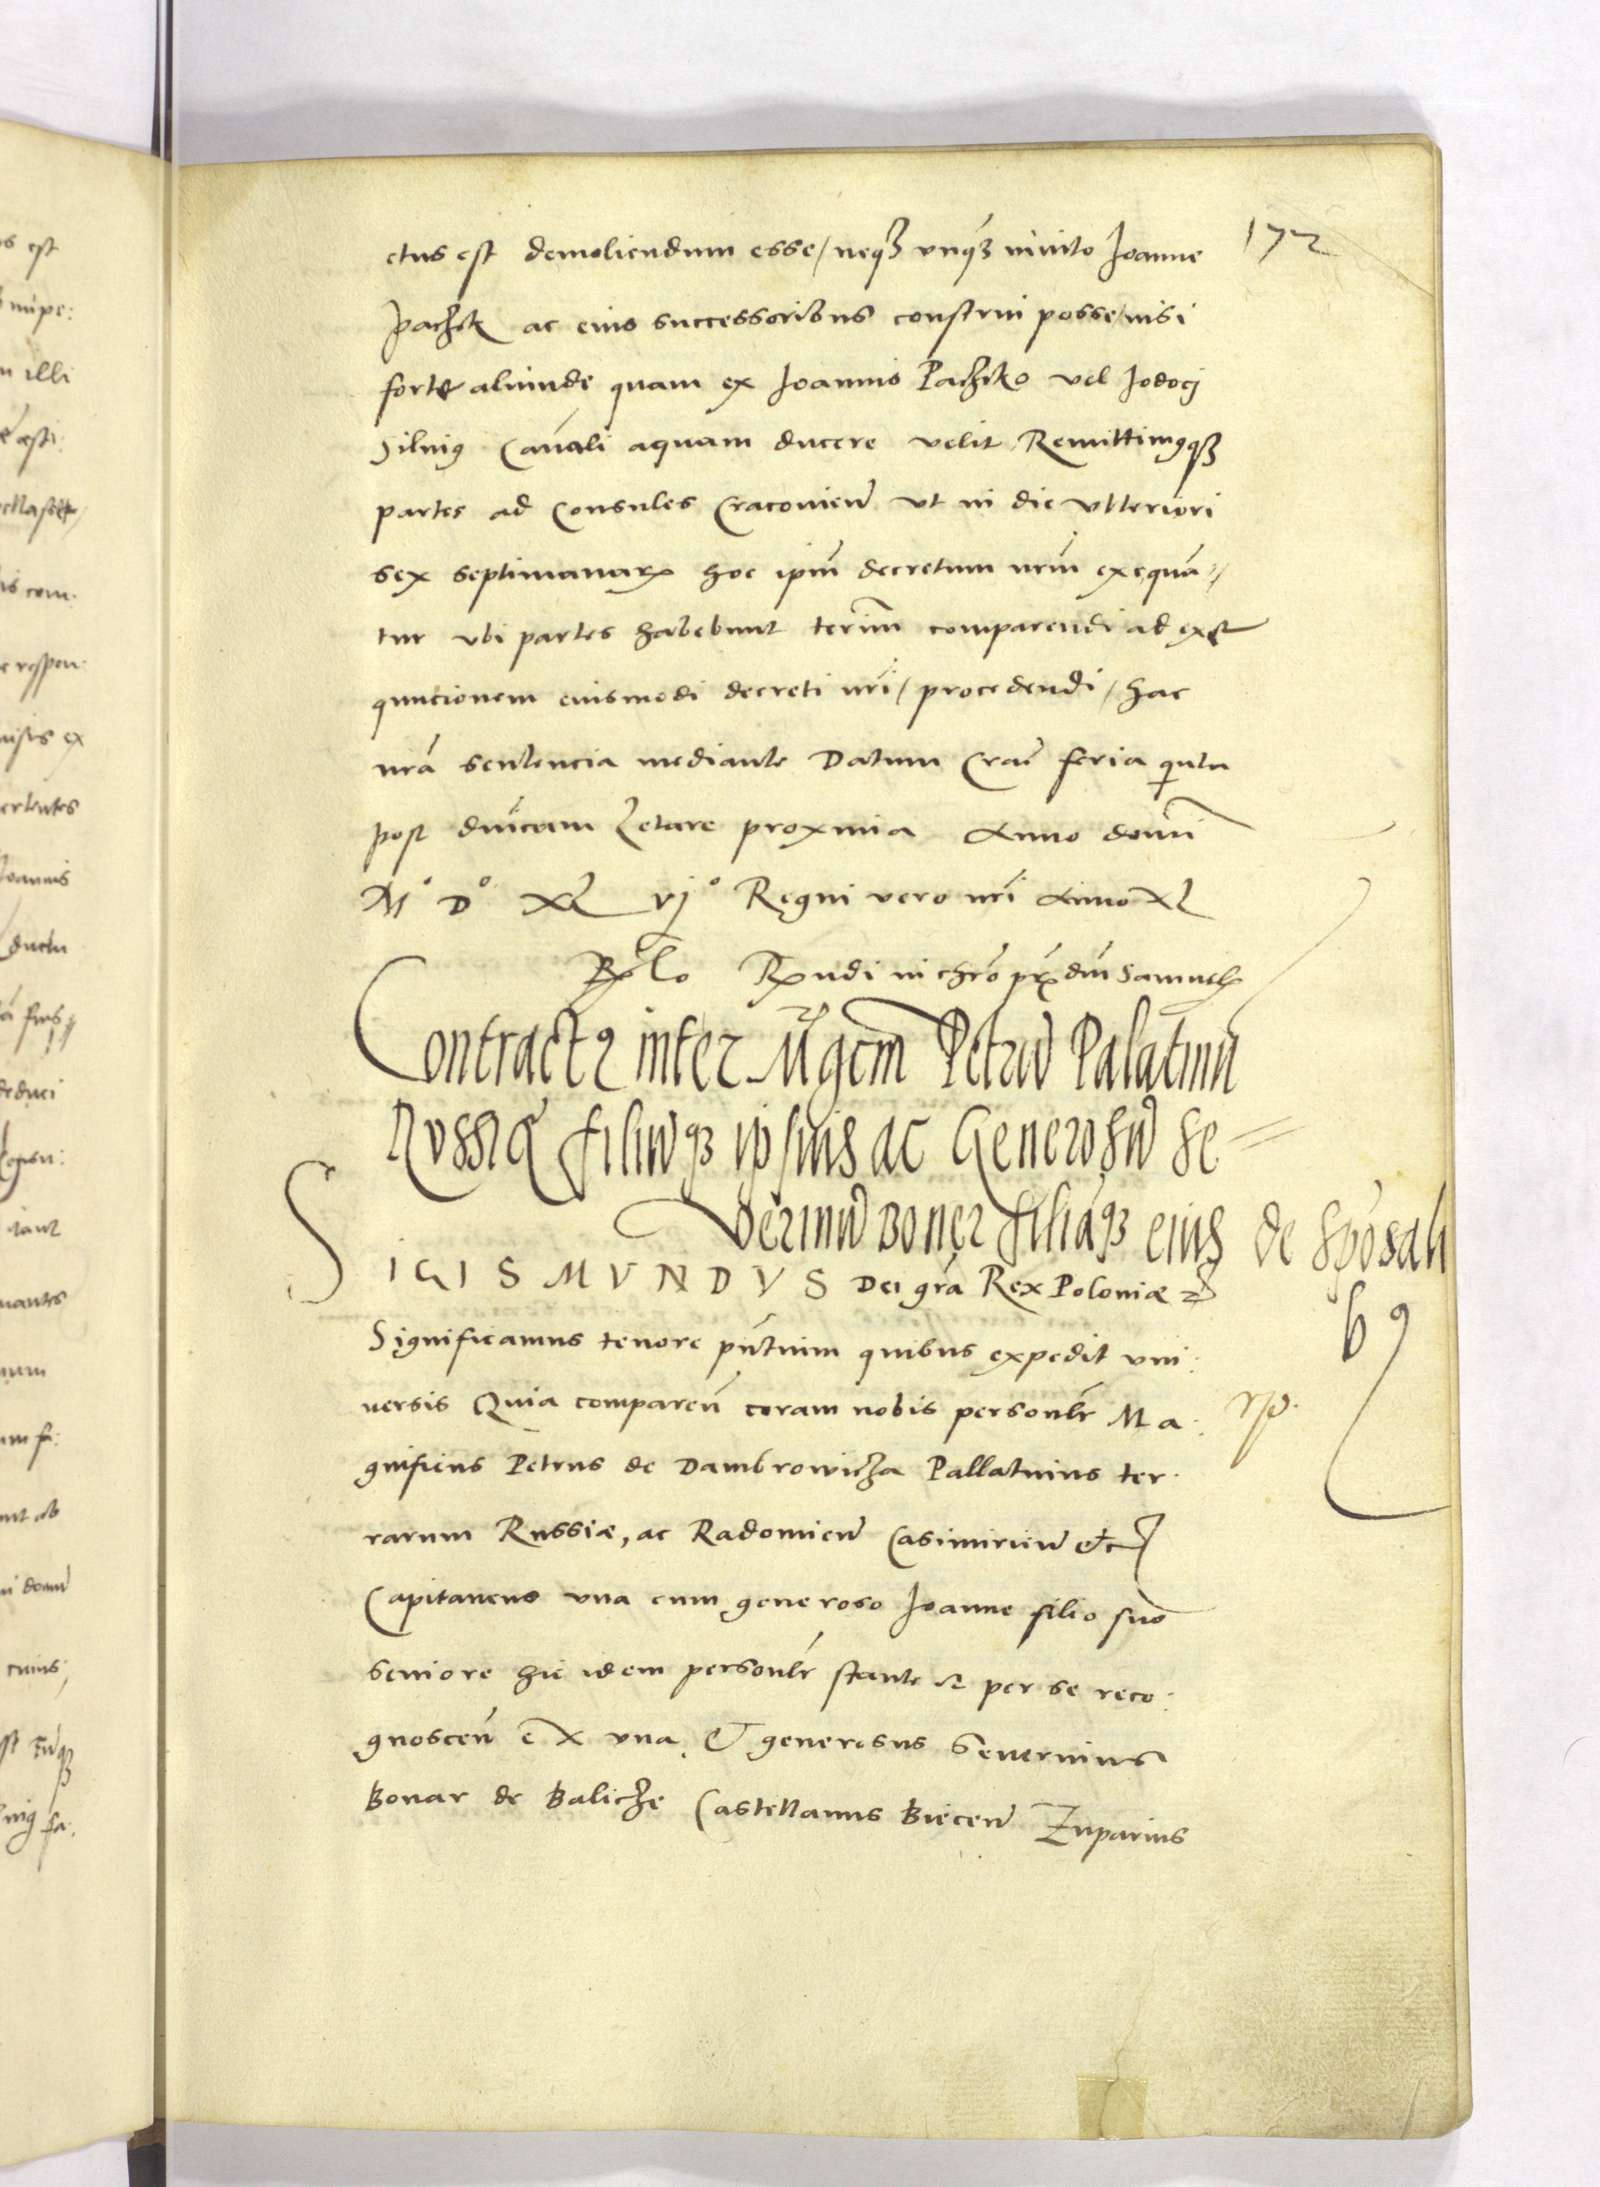 172
ctus est demoliendum esse / neqȝ vnqȝ inuito Joanne
Paczk ac eius successoribus construi posse / nisi
forte aliunde quam ex Joannis Paczko vel Jodoci
Silnig Canali aquam ducere velit Remittimgqȝ
partes ad Consules Cracovien̄ ut in die ulteriori
sex septimanarꝝ hoc ipm̄ decretum nr̄m exequā-
tur ubi partes habebunt termī comparendi ad exe
quucionem eiusmodi decreti nr̄i / procedendi / hac
nr̄a sentencia mediante Datum Crac̄ feria quīta
post dn̄icam Letare proxima Anno domī
M° D° XL vj° Regni vero nr̄i Anno XL
R̄lo Rndi in chrō pr̄ dn̄i Samuel
Contractꝰ inter Mgcm̄ Petrū Palatinū
Russię filiūqȝ ipsius ac Generosū Se=
verinū Boner filiāqȝ eius de Spōsali
bꝰ
SIGISMVNDVS Dei gr̄a Rex Poloniæ
Significamus tenore pn̄tium quibus expedit vni:
uersis Quia comparen̄ coram nobis personlr̄ Ma:
gnificus Petrus de Dambrowicza Pallatinus ter.
rarum Russiæ, ac Radomien̄ Casimirien̄ etc
Capitaneus una cum generoso Joanne filio suo
seniore hic idem personlr̄ stante et per se reco:
gnoscen̄ ex una, Et generosus Seuerinus
Bonar de Balicze Castellanus Biecen̄ Zuparius